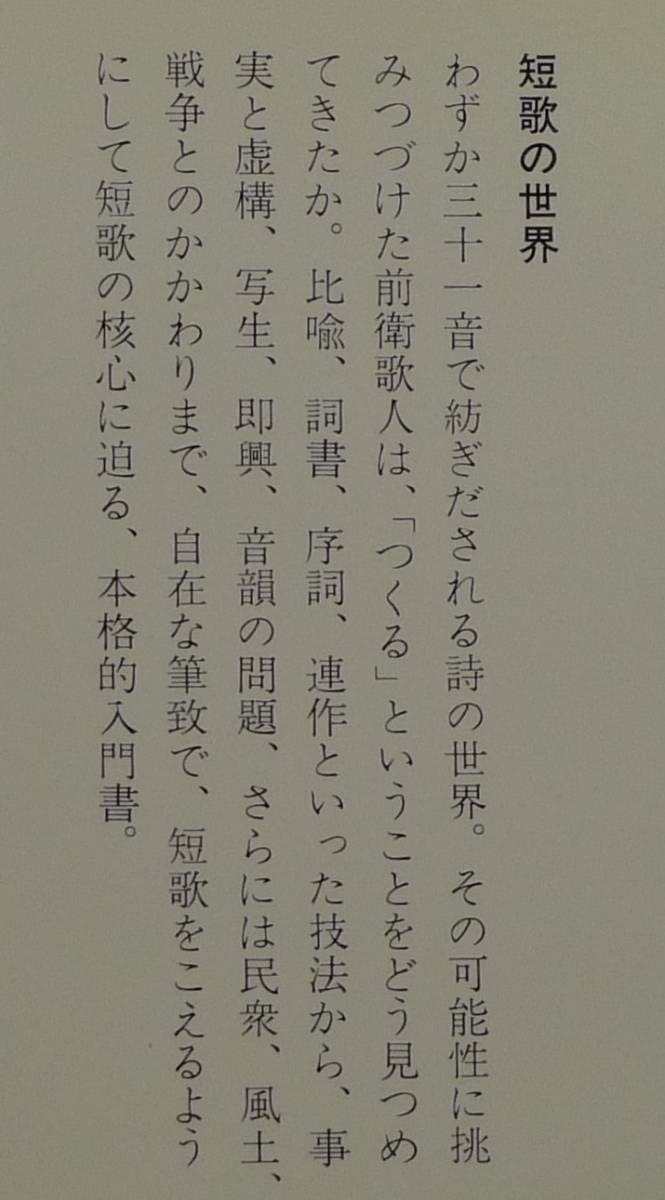 短歌の世界
わずか三十一音で紡ぎだされる詩の世界。その可能性に挑
みつづけた前衛歌人は、「つくる」ということをどう見つめ
てきたか。比喩、詞書、序詞、連作といった技法から、事
実と虚構、写生、即興、音韻の問題、さらには民衆、風土、
戦争とのかかわりまで、自在な筆致で、短歌をこえるよう
にして短歌の核心に迫る、本格的入門書。